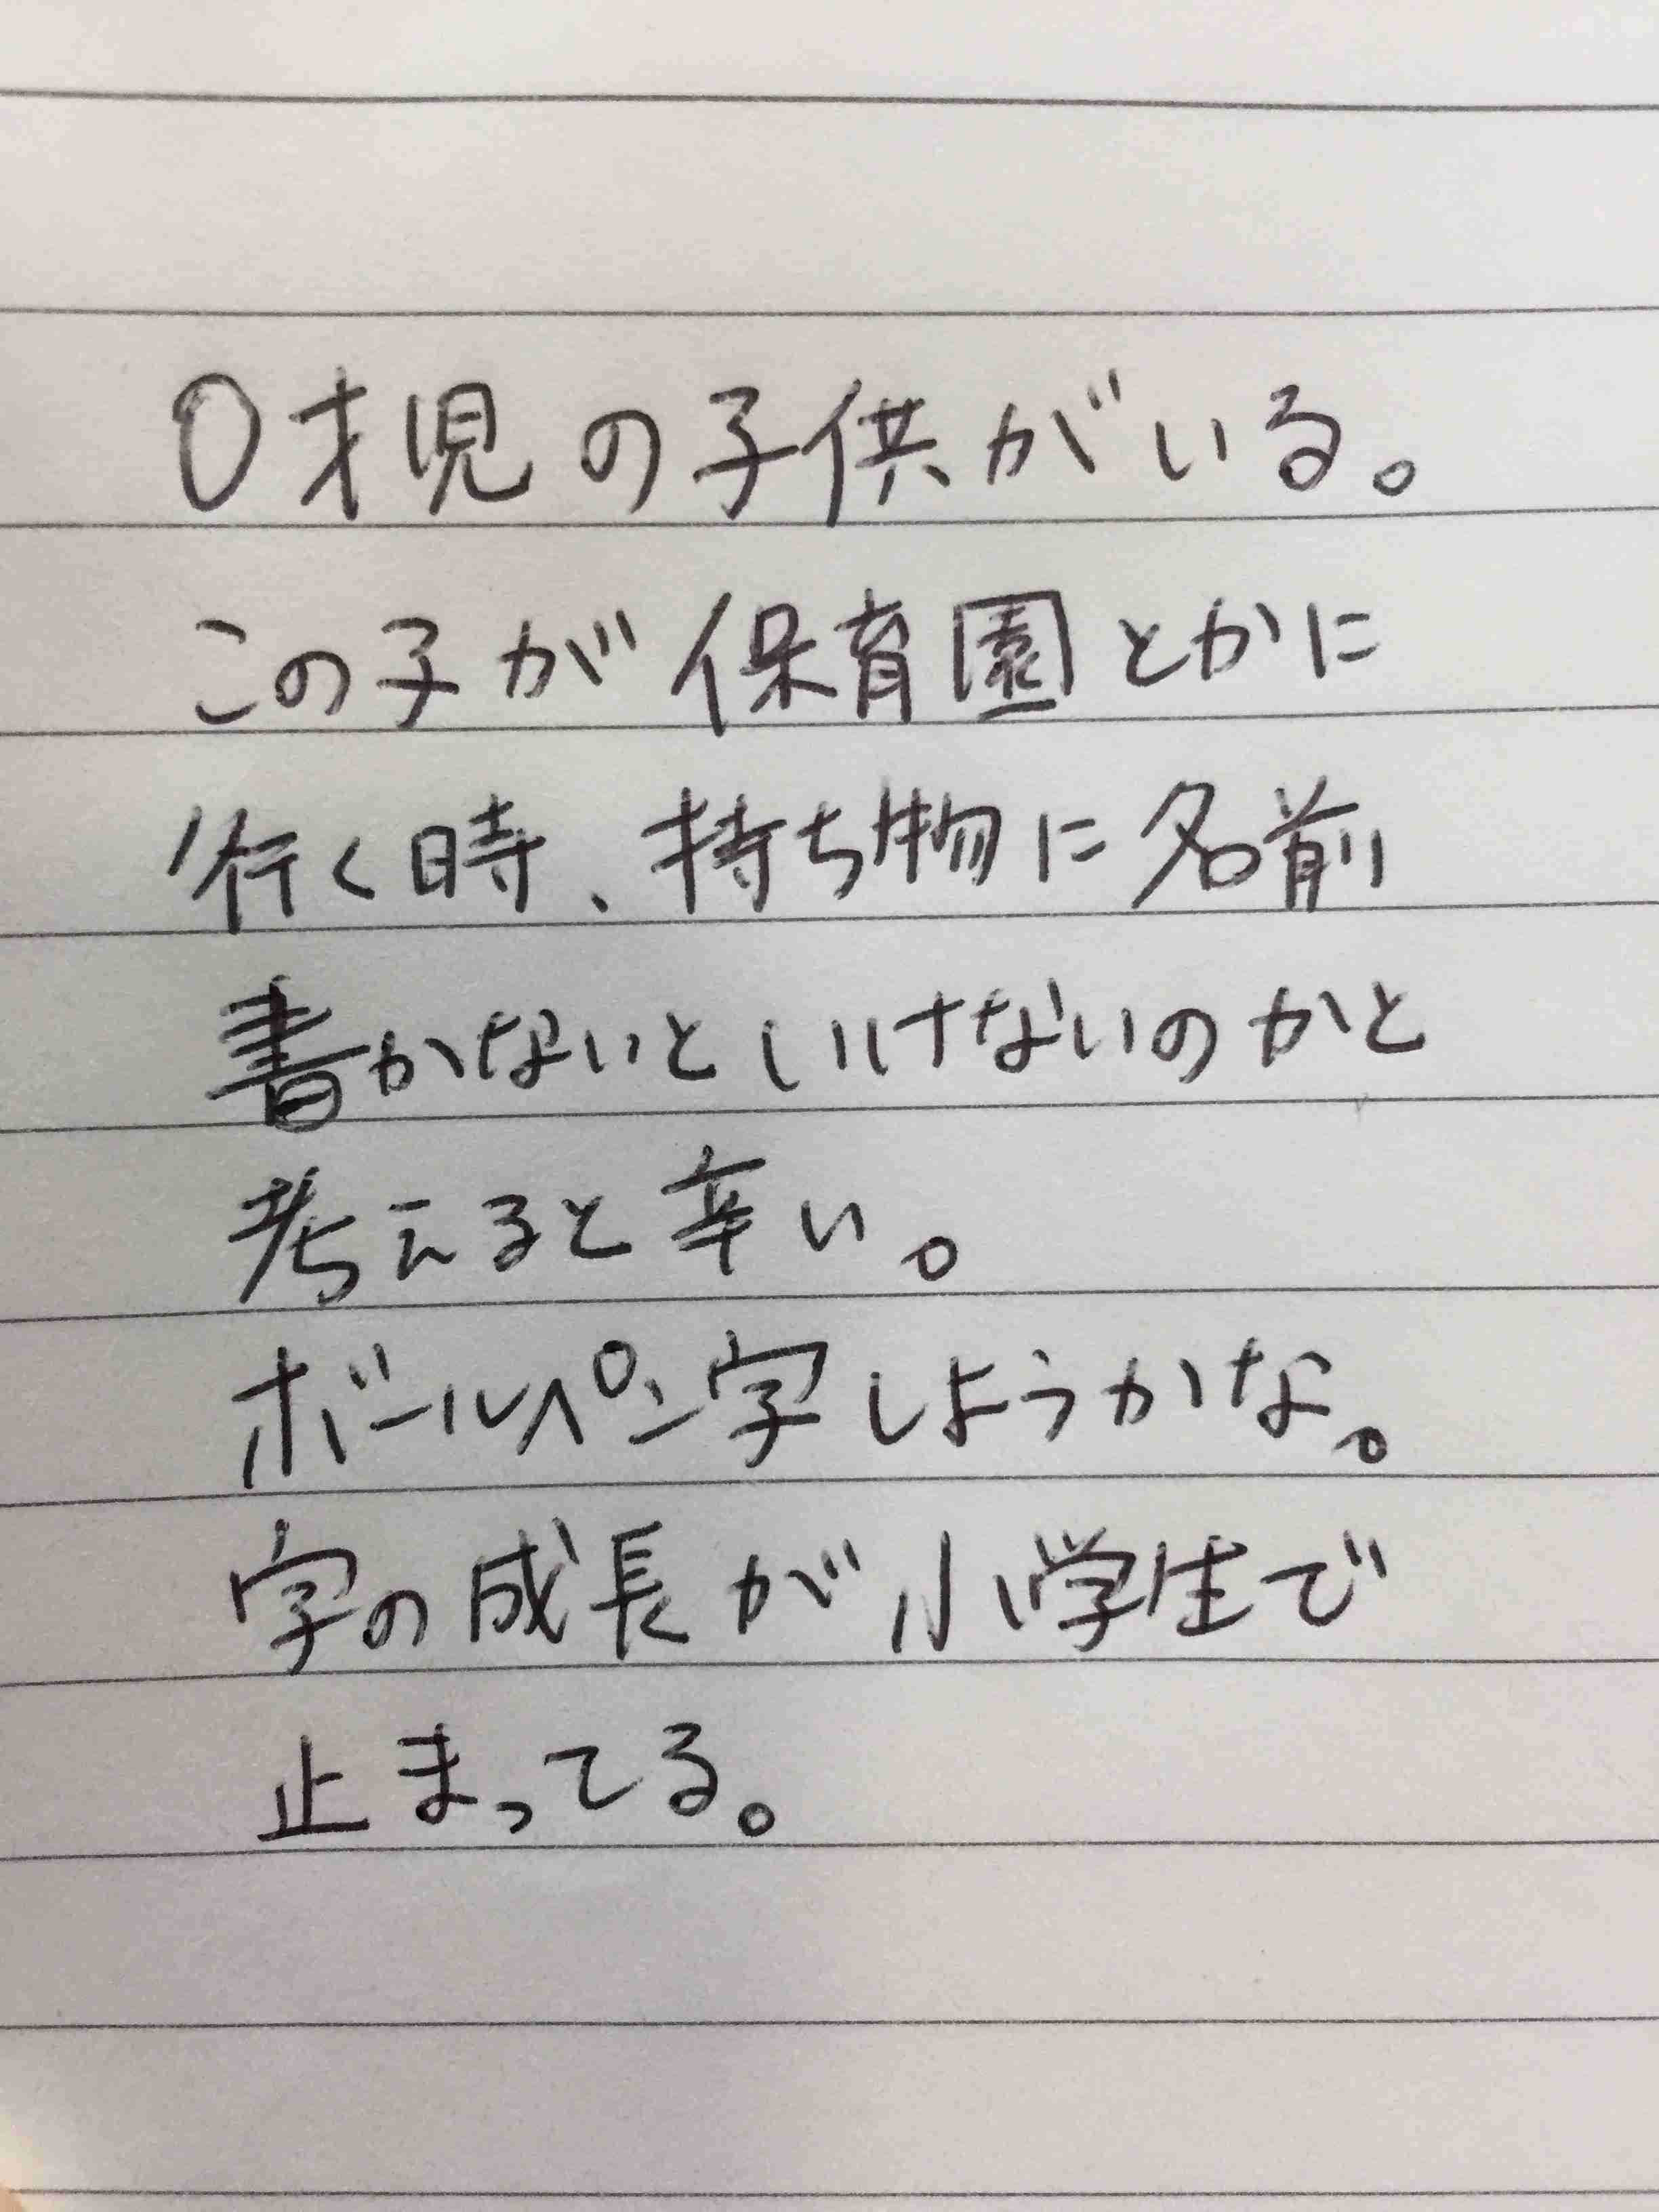 0才児の子供がいる。
この子が保育園とかに
行く時、持ち物に名前
書かないといけないのかと
考えると辛い。
ボールペン字しようかな。
字の成長が小学生で
止まってる。